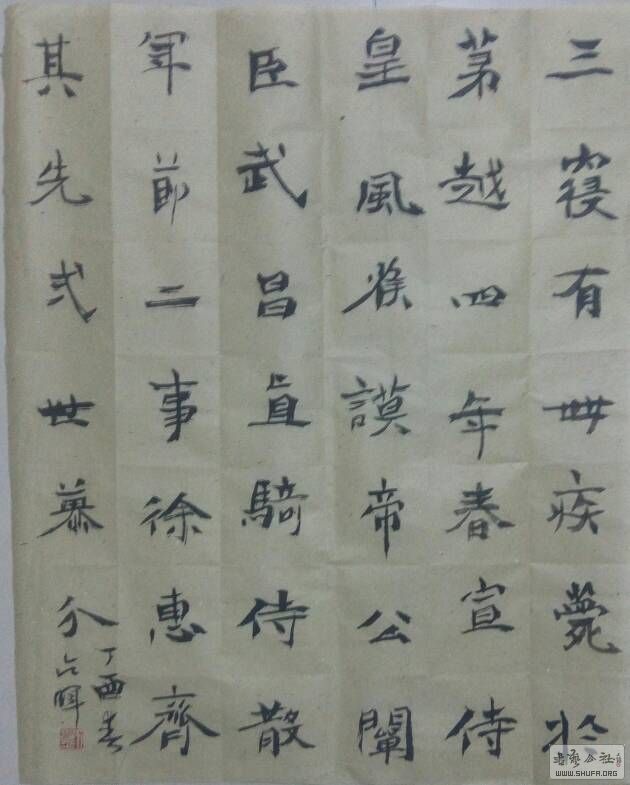 三有疾薨於
第越四年春宣侍
皇風謨帝公闡
臣武昌直騎侍散
軍節二事徐惠齊
其先世慕
丁酉春
WWW.SHUFA.ORG